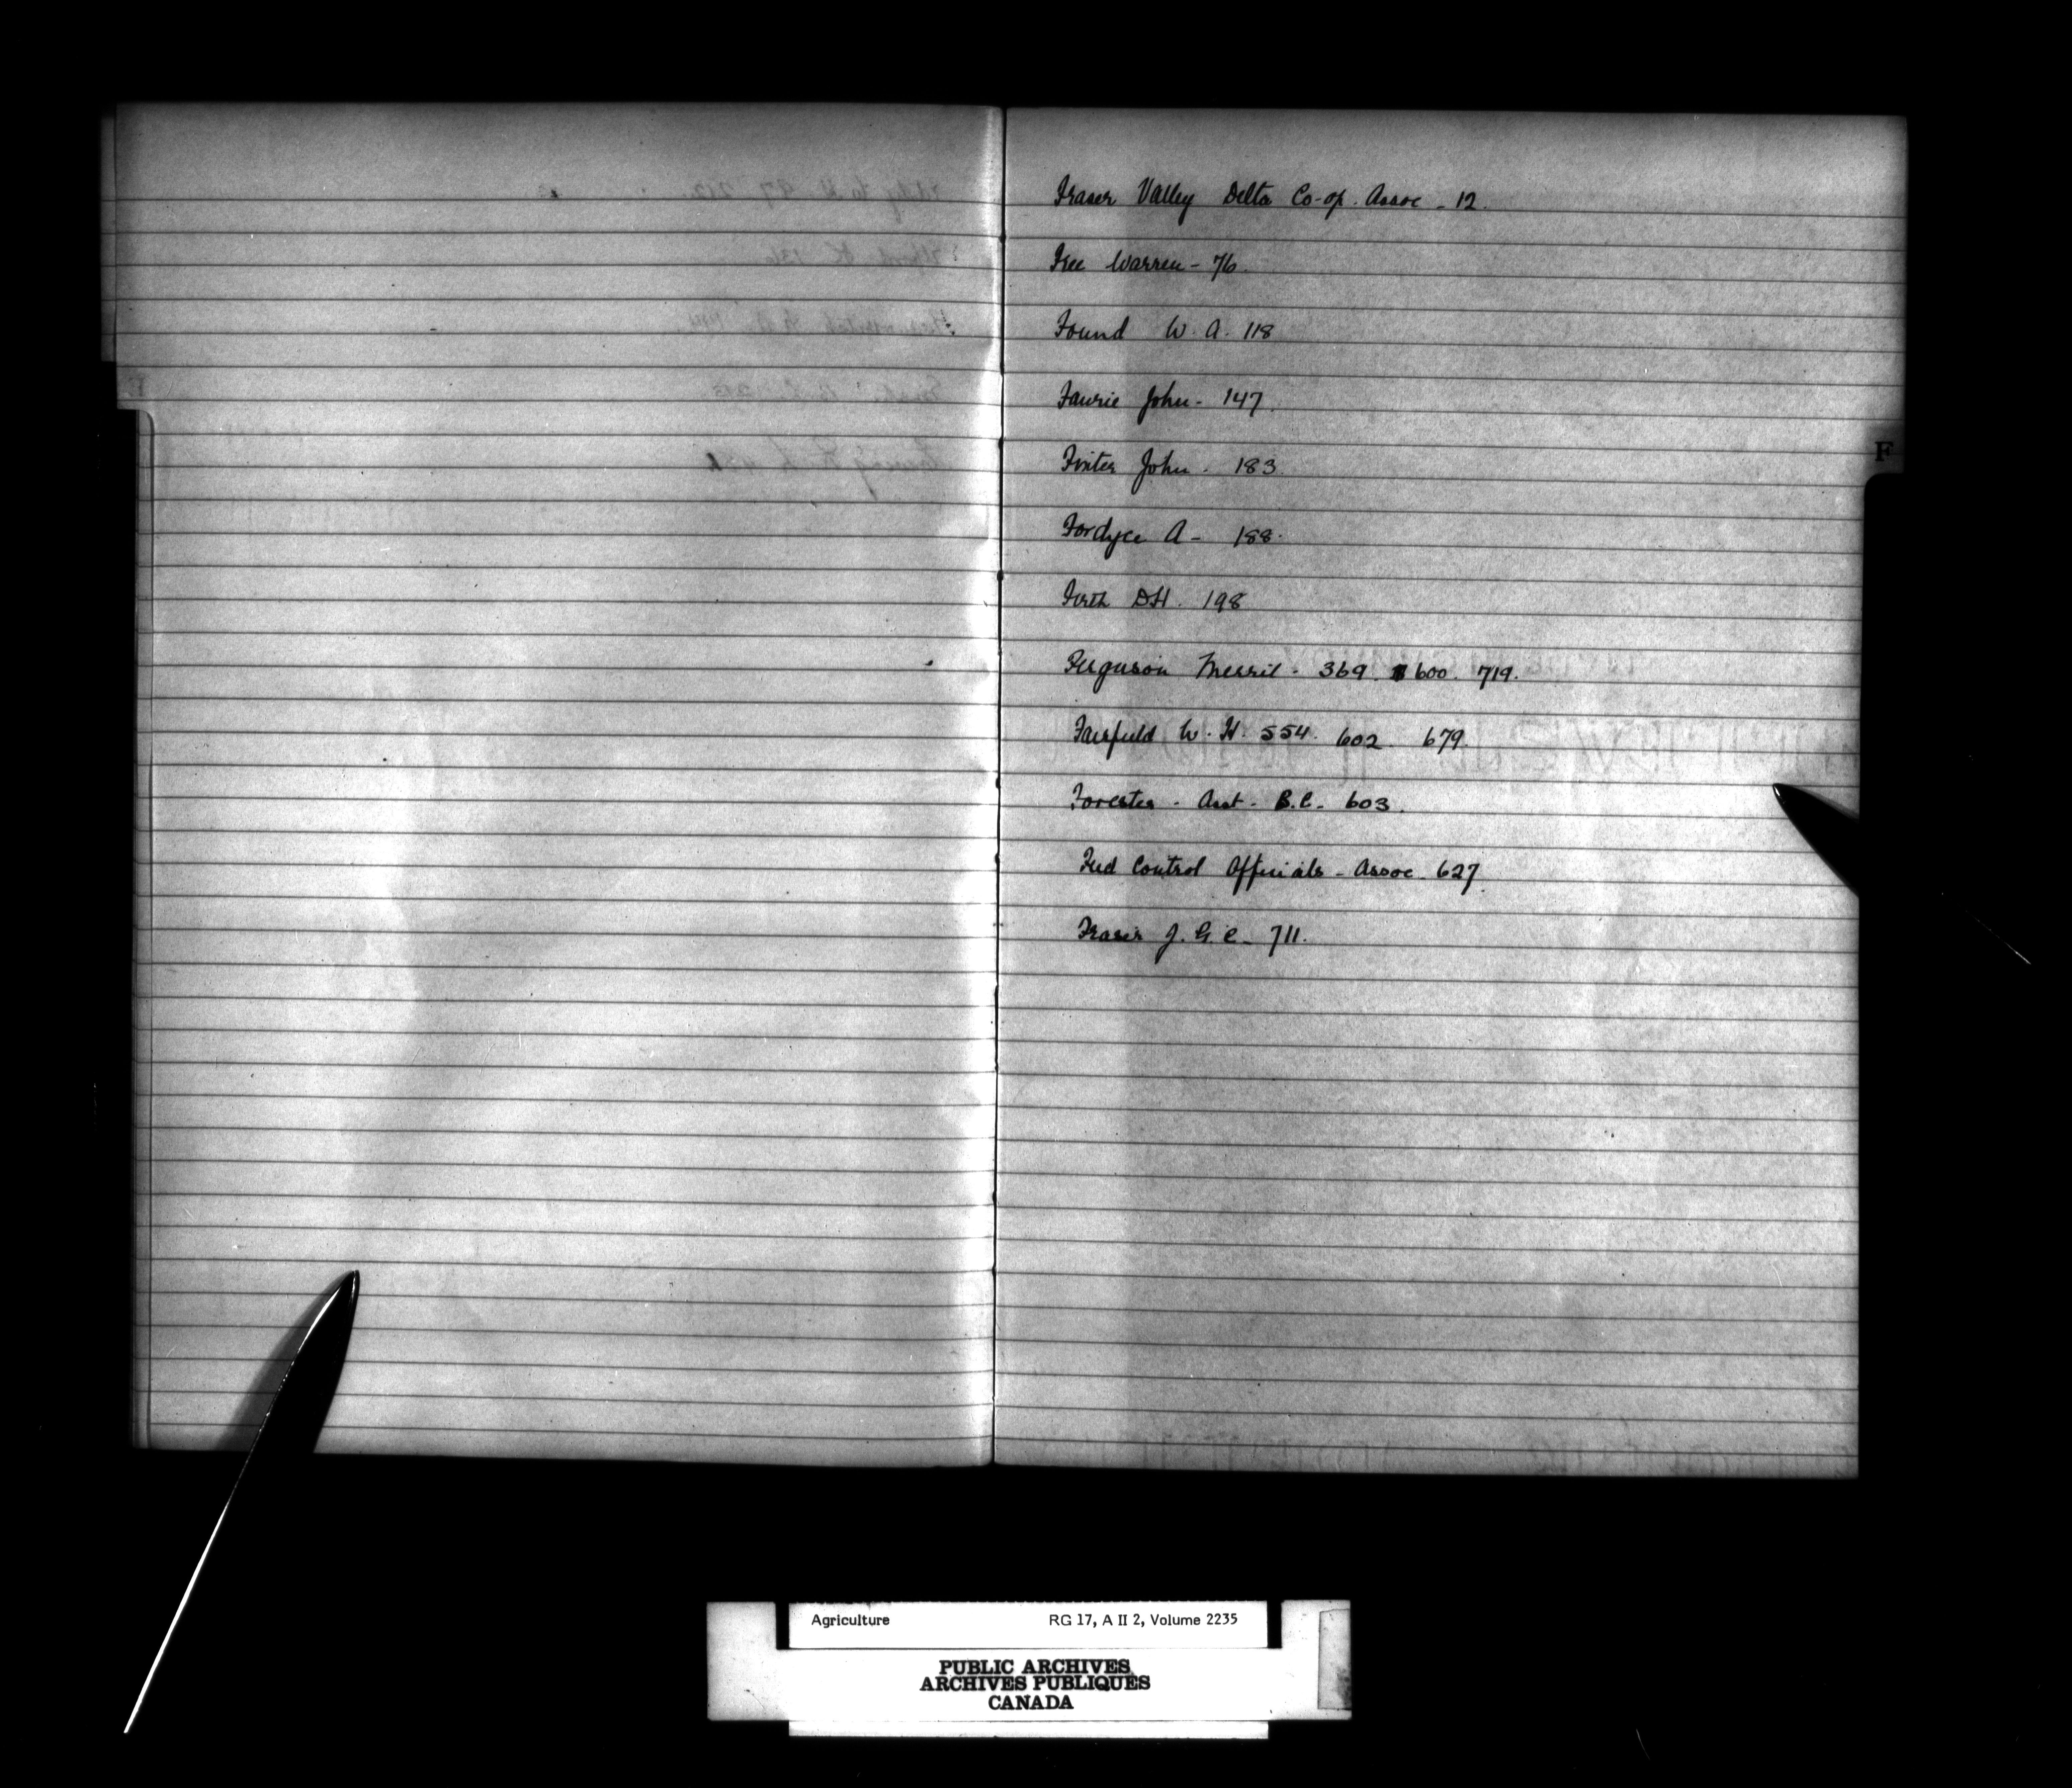 Fraser Valley Delta Co-op. Assoc - 12.
Free Warren - 76.
Found W. A. 118
Fawrie John - 147.
Foster John - 183
Fordyce A - 188.
Firth D.H. 198
Ferguson Merril - 369. 600. 719.
Fairfield W. H. 554. 602. 679.
Forester - Asst - B.C. - 603.
Feed Control Officials - Assoc. 627.
Fraser J. G. C - 711.
F
Agriculture RG 17, A II 2, Volume 2235
PUBLIC ARCHIVES
ARCHIVES PUBLIQUES
CANADA